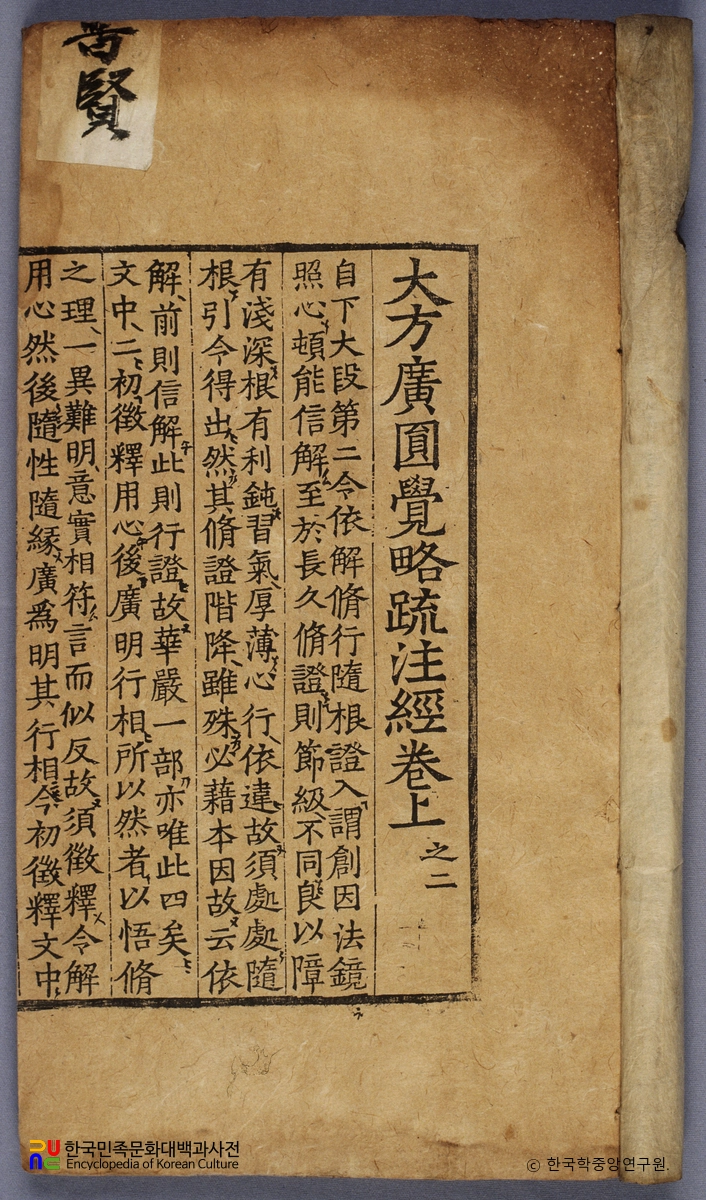 普賢
大方廣圓覺略疏注經卷上之二
自下大段第二令依解脩行隨根證入謂創因法鏡
照心頓能信解至於長久脩證則節級不同良以障
有淺深根有利鈍習氣厚薄心行依違故須處處隨
根引令得出然其脩證階降雖殊必藉本因故云依
解前則信解此則行證故華嚴一部亦唯此四矣
文中二初徵釋用心後廣明行相所以然者以悟脩
之理一異難明意實相符言而似反故須徵釋令解
用心然後隨性隨緣廣爲明其行相今初徵釋文中
한국민족문화대백과사전
Encyclopedia of Korean Culture
© 한국학중앙연구원.